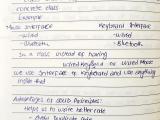 concrete class
Example
Mouse interface Keyboard Interface
-wired -wired
-Bluetooth -Bluetooth
In a mac instead of having
wired Keyboard or Wired Mouse
we use Interface of Keyboard and use anything
inside that
Advantages of Solid Principles:
Helps us to write better code